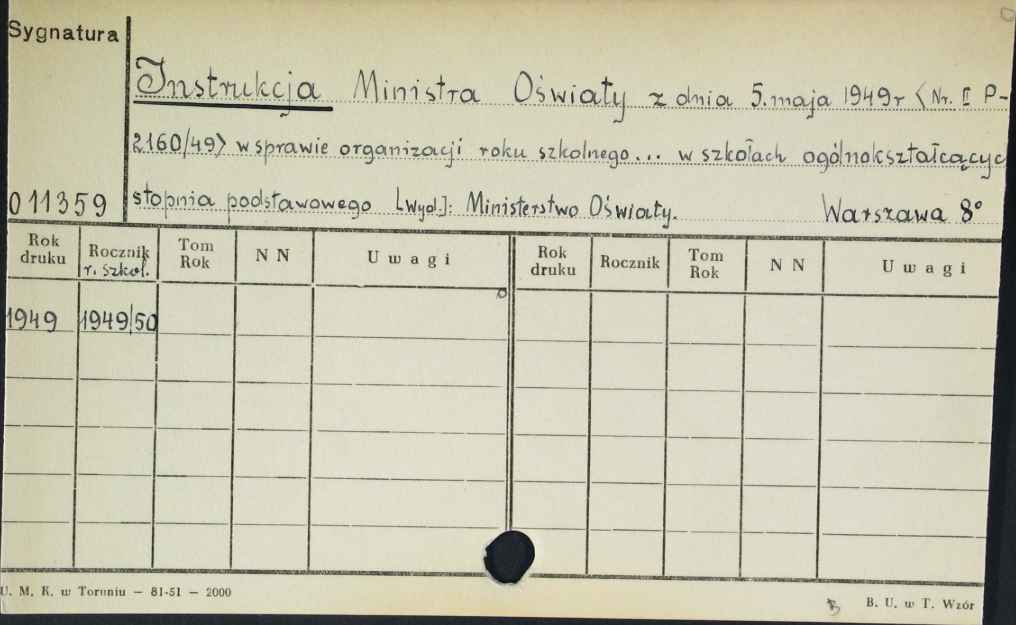 Sygnatura
Instrukcja Ministra Oświaty z dnia 5. maja 1949 r (Nr. II P-
2160/49) w sprawie organizacji roku szkolnego... w szkołach ogólnokształcącyc
011359 stopnia podstawowego [Wyd.]: Ministerstwo Oświaty. Warszawa 8°
Rok druku Rocznik r. szkol. Tom Rok N N Uwagi Rok druku Rocznik Tom Rok N N Uwagi
1949 1949/50
U. M. K. w Toruniu — 81-51 — 2000 B. U. w T. Wzór